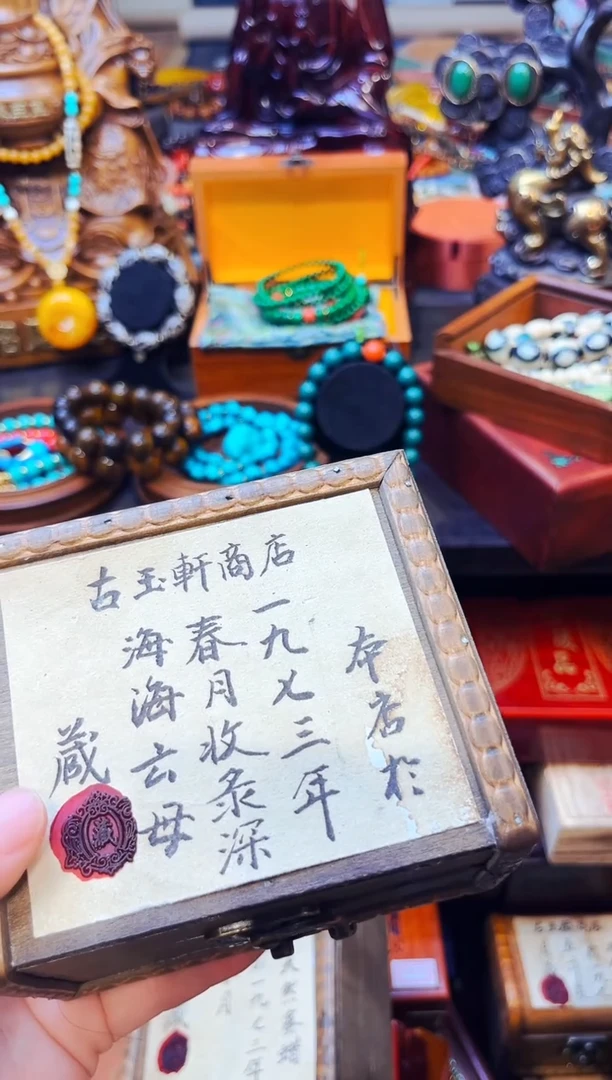 古玉軒商店
本店於
一九七三年
春月收录深
海海云母
藏
藏